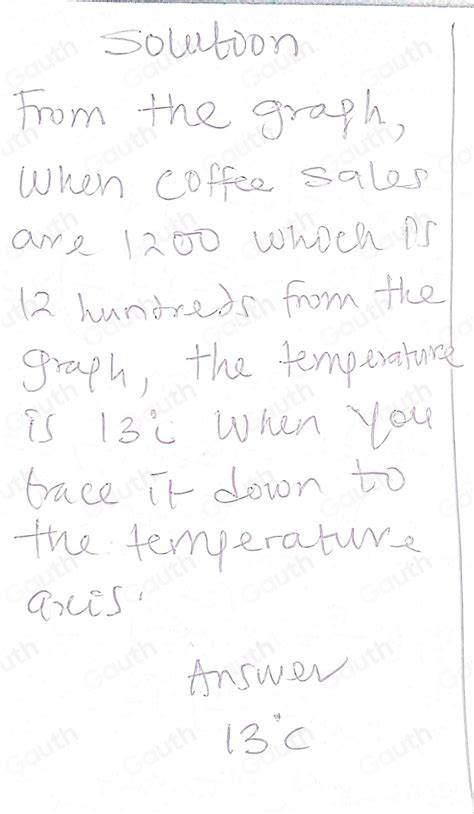 Solutoon
From the graph,
when coffee sales
are 1200 which is
12 hundreds from the
graph, the temperature
is 13°c when you
trace it down to
the temperature
axis.
Answer
13°c